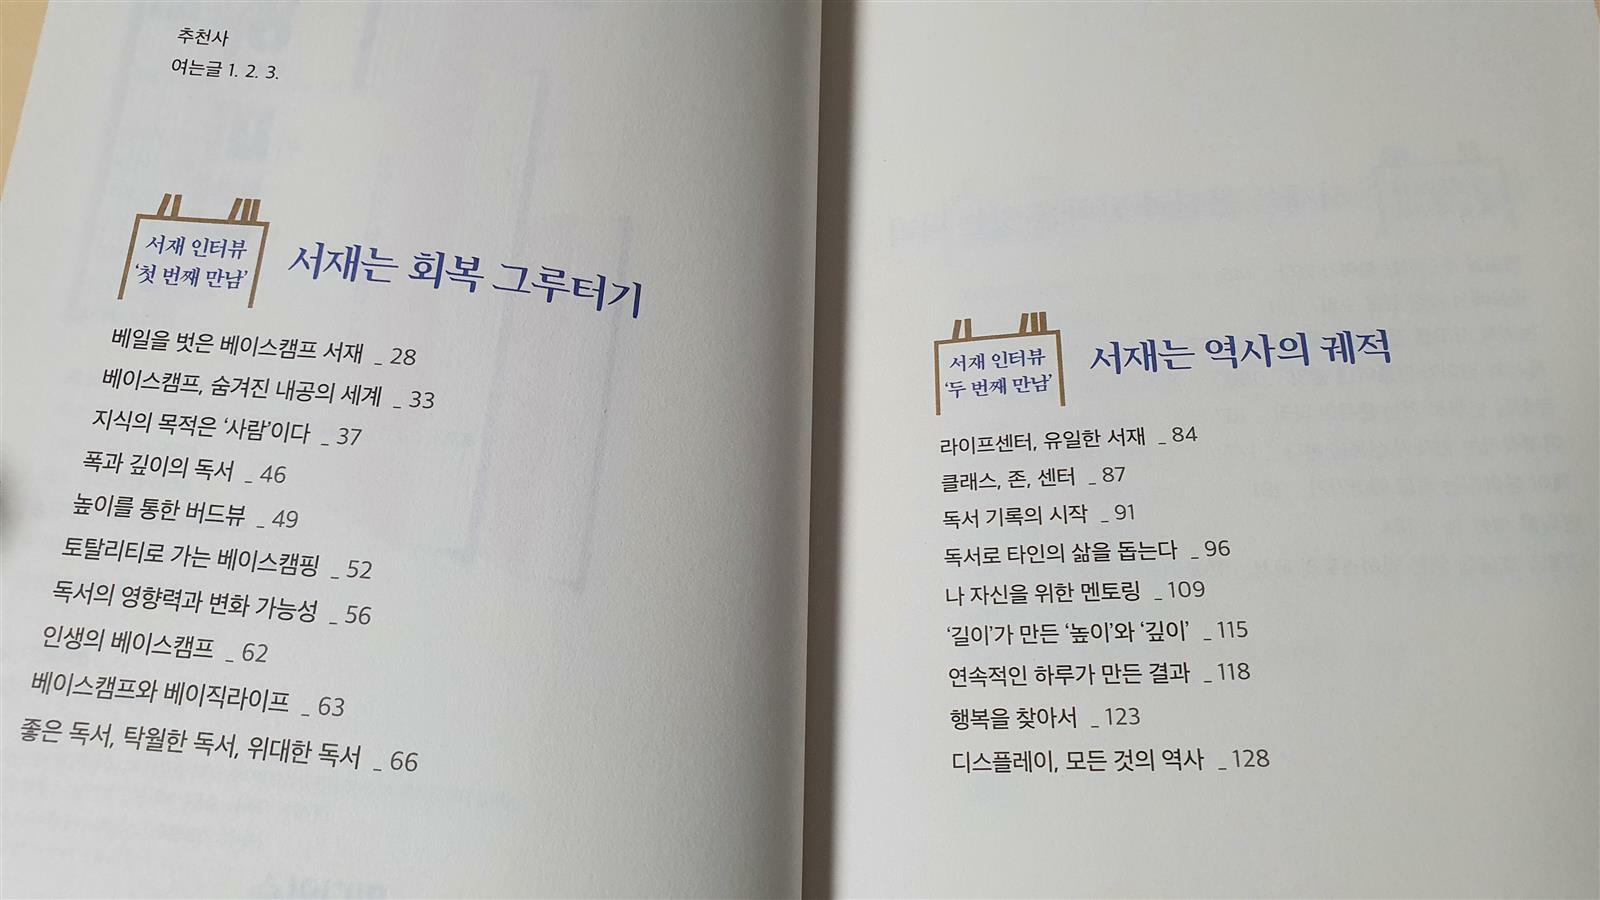 추천사
여는글 1. 2. 3.
서재 인터뷰
‘첫 번째 만남’
서재는 회복 그루터기
베일을 벗은 베이스캠프 서재 _ 28
베이스캠프, 숨겨진 내공의 세계 _ 33
지식의 목적은 ‘사람’이다 _ 37
폭과 깊이의 독서 _ 46
높이를 통한 버드뷰 _ 49
토탈리티로 가는 베이스캠핑 _ 52
독서의 영향력과 변화 가능성 _ 56
인생의 베이스캠프 _ 62
베이스캠프와 베이직라이프 _ 63
좋은 독서, 탁월한 독서, 위대한 독서 _ 66
서재 인터뷰
‘두 번째 만남’
서재는 역사의 궤적
라이프센터, 유일한 서재 _ 84
클래스, 존, 센터 _ 87
독서 기록의 시작 _ 91
독서로 타인의 삶을 돕는다 _ 96
나 자신을 위한 멘토링 _ 109
‘길이’가 만든 ‘높이’와 ‘깊이’ _ 115
연속적인 하루가 만든 결과 _ 118
행복을 찾아서 _ 123
디스플레이, 모든 것의 역사 _ 128